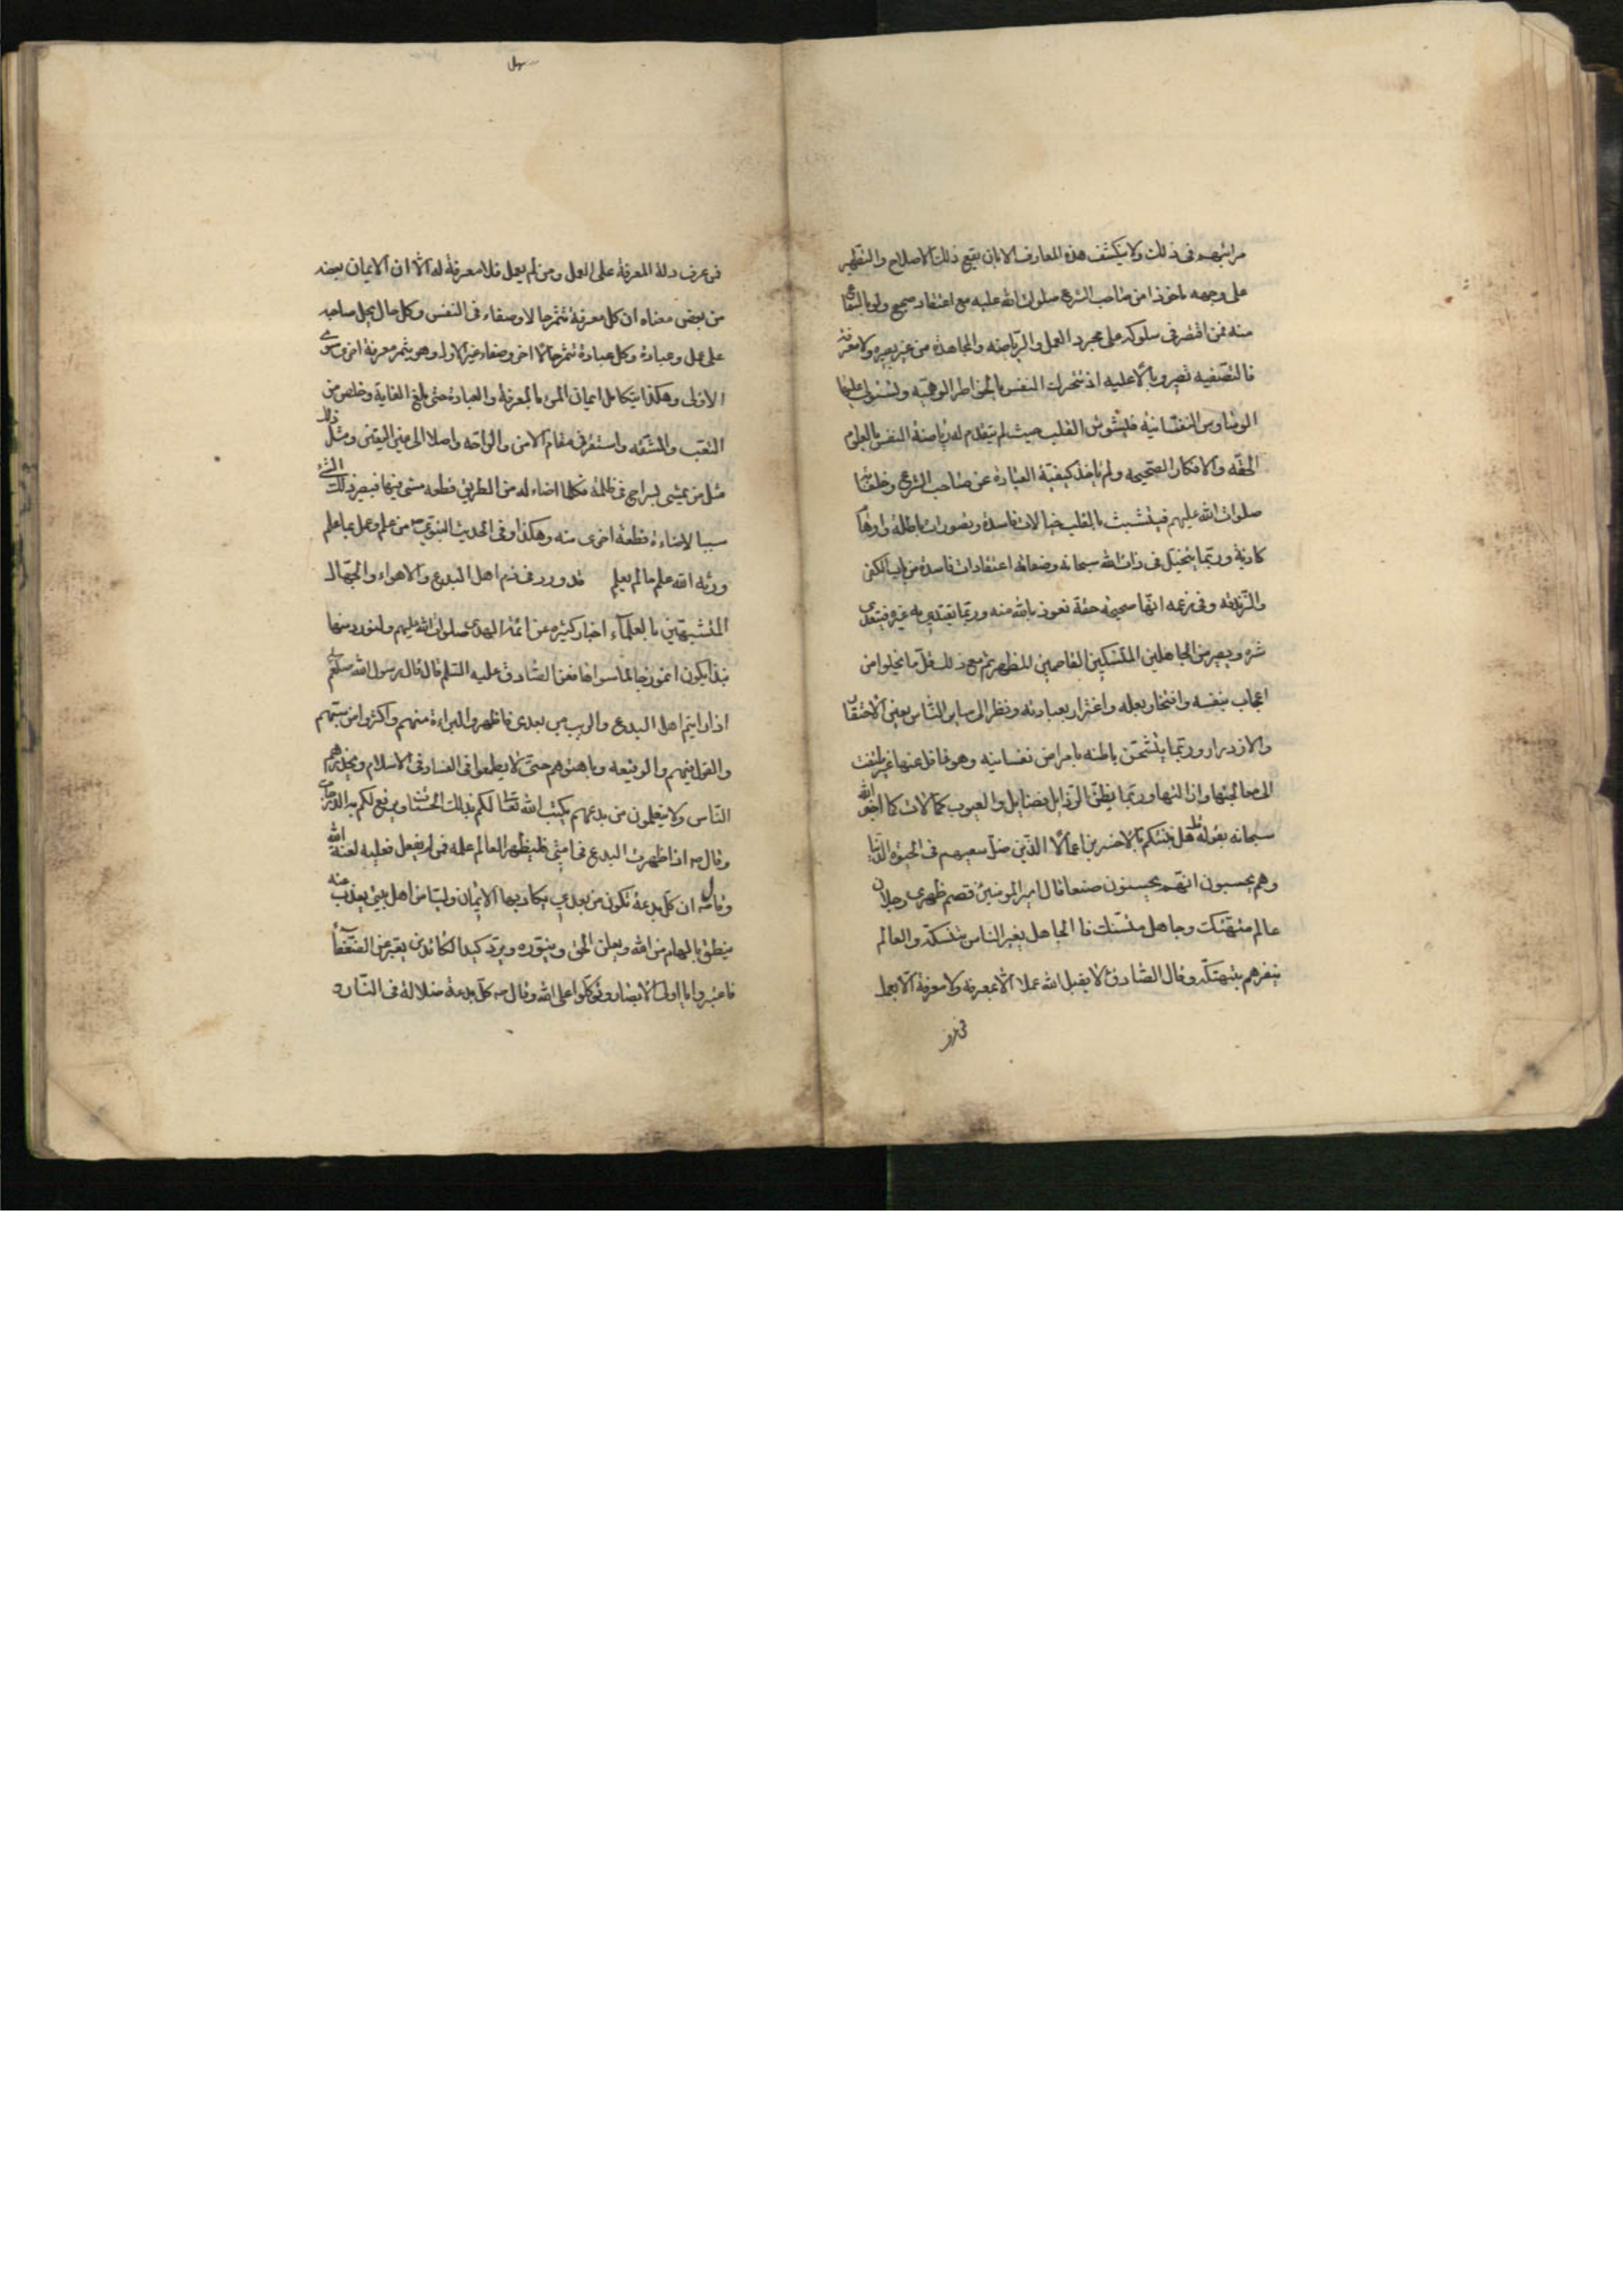 مراتبهم فى ذلك ولا ينكشف هذه المعارف الا بان يقع ذلك الاصلاح والتطهير
على وجهه ماخوذا من صاحب الشرع صلوات الله عليه مع اعتقاد صحيح ولو بالسماع
منه فمن اقتصر فى سلوكه على مجرد العمل والرّياضه والمجاهده من غير بصيره ولا معرفة
فالتصفيه تصير وبالا عليه اذ تتحرك النفس بالخواطر الوهميّه ويستولى عليها
الوساوس النفسانيه فيشوش القلب حيث لم يتقدم له رياضة النفس بالعلوم
الحقه والافكار الصحيحه ولم ياخذ كيفيّة العبادة عن صاحب الشرع وخلفائه
صلوات الله عليهم فيتشبث بالقلب خيالات فاسدة وتصورات باطلة واوهام
كاذبة وربّما يتخيل فى ذات الله سبحانه وصفاته اعتقادات فاسدة من باب الكفر
والزّندقه وفى زعمه انّها صحيحه حقة نعوذ بالله منه وربّما يقتدى به غيره فيتعدى
شره ويصير من الجاهلين المتنسكين القاصمين للظهر ثم مع ذلك قلّ ما يخلوا من
اعجاب بنفسه وافتخار بعمله واغترار بعبادته ونظر الى ساير النّاس بعين الاحتقار
والازدراء وربّما يتشحن باطنه بامراض نفسانيه وهو غافل عنها غير ملتفت
الى معالجتها وازالتها وربّما يظنّ الرّذايل فضايل والعيوب كمالات كما اخبر الله
سبحانه بقوله هل ننبئكم بالاخسرين اعمالا الّذين ضلّ سعيهم فى الحيوة الدّنيا
وهم يحسبون انّهم يحسنون صنعا قال امير المومنين قصم ظهرى رجلان
عالم متهتك وجاهل متنسك فالجاهل يغير الناس بتنسكه والعالم
ينفرهم بتهتكه وقال الصّادق لا يقبل الله عملا الّا بمعرفة ولا معرفة الّا بعمل
فمن
فمن عرف دلة المعرفة على العمل ومن لم يعمل فلا معرفة له الا ان الايمان بعضه
من بعض معناه ان كل معرفة تثمر حالا وصفاء فى النفس وكل حال يحمل صاحبه
على عمل وعبادة وكل عبادة تثمر حالا اخر وصفاء غير الاول وهو يثمر معرفة اخرى سوى
الاولى وهكذا يتكامل ايمان المرء بالمعرفة والعبادة حتى بلغ الغاية وخلص من
التعب والمشقه واستقر فى مقام الامن والراحه واصلا الى عين اليقين ومثل ذلك
مثل من يمشى بسراج فى ظلمة فكلما اضاء له من الطريق قطعه مشى فيها فيصير ذلك المشى
سببا لاضاءة قطعة اخرى منه وهكذا وفى الحديث النبوى من علم وعمل بما علم
ورثه الله علم ما لم يعلم قد ورد فى ذم اهل البدع والاهواء والجهّال
المتشبهين بالعلماء اخبار كثيره عن ائمة الهدى صلوات الله عليهم ولنورد منها
نبذا يكون انموذجا لما سواها فعن الصّادق عليه السّلم قال قال رسول الله صلعم
اذا رايتم اهل البدع والريب من بعدى فاظهروا البراءة منهم واكثروا من سبّهم
والقول فيهم والوقيعه وباهتوهم حتى لا يطمعوا فى الفساد فى الاسلام ويحذرهم
النّاس ولا يتعلمون من بدعهم يكتب الله لكم بذلك الحسنات ويرفع لكم به الدرجات
وقال ص اذا ظهرت البدع فى امتى فليظهر العالم علمه فمن لم يفعل فعليه لعنة الله
وقال ان كل بدعة تكون من بعدى يكاد بها الايمان وليّا من اهل بيتى يذب عنه
ينطق بالهام من الله ويعلن الحق وينوره ويرد كيد الكائدين يعبر عن الضعفاء
فاعتبروا يا اولى الابصار وتوكلوا على الله وقال ص كل بدعة ضلالة فى النّار و